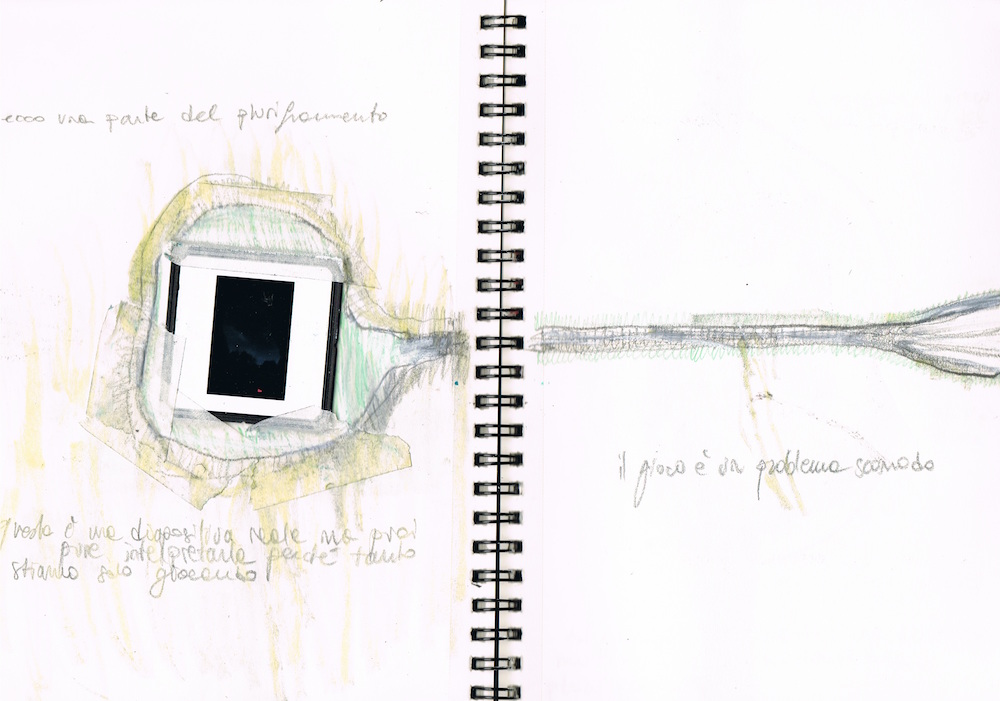 ecco una parte del pluriframmento
questa è una diapositiva reale ma puoi
pure interpretarla perché tanto
stiamo solo giocando
il gioco è un problema scomodo